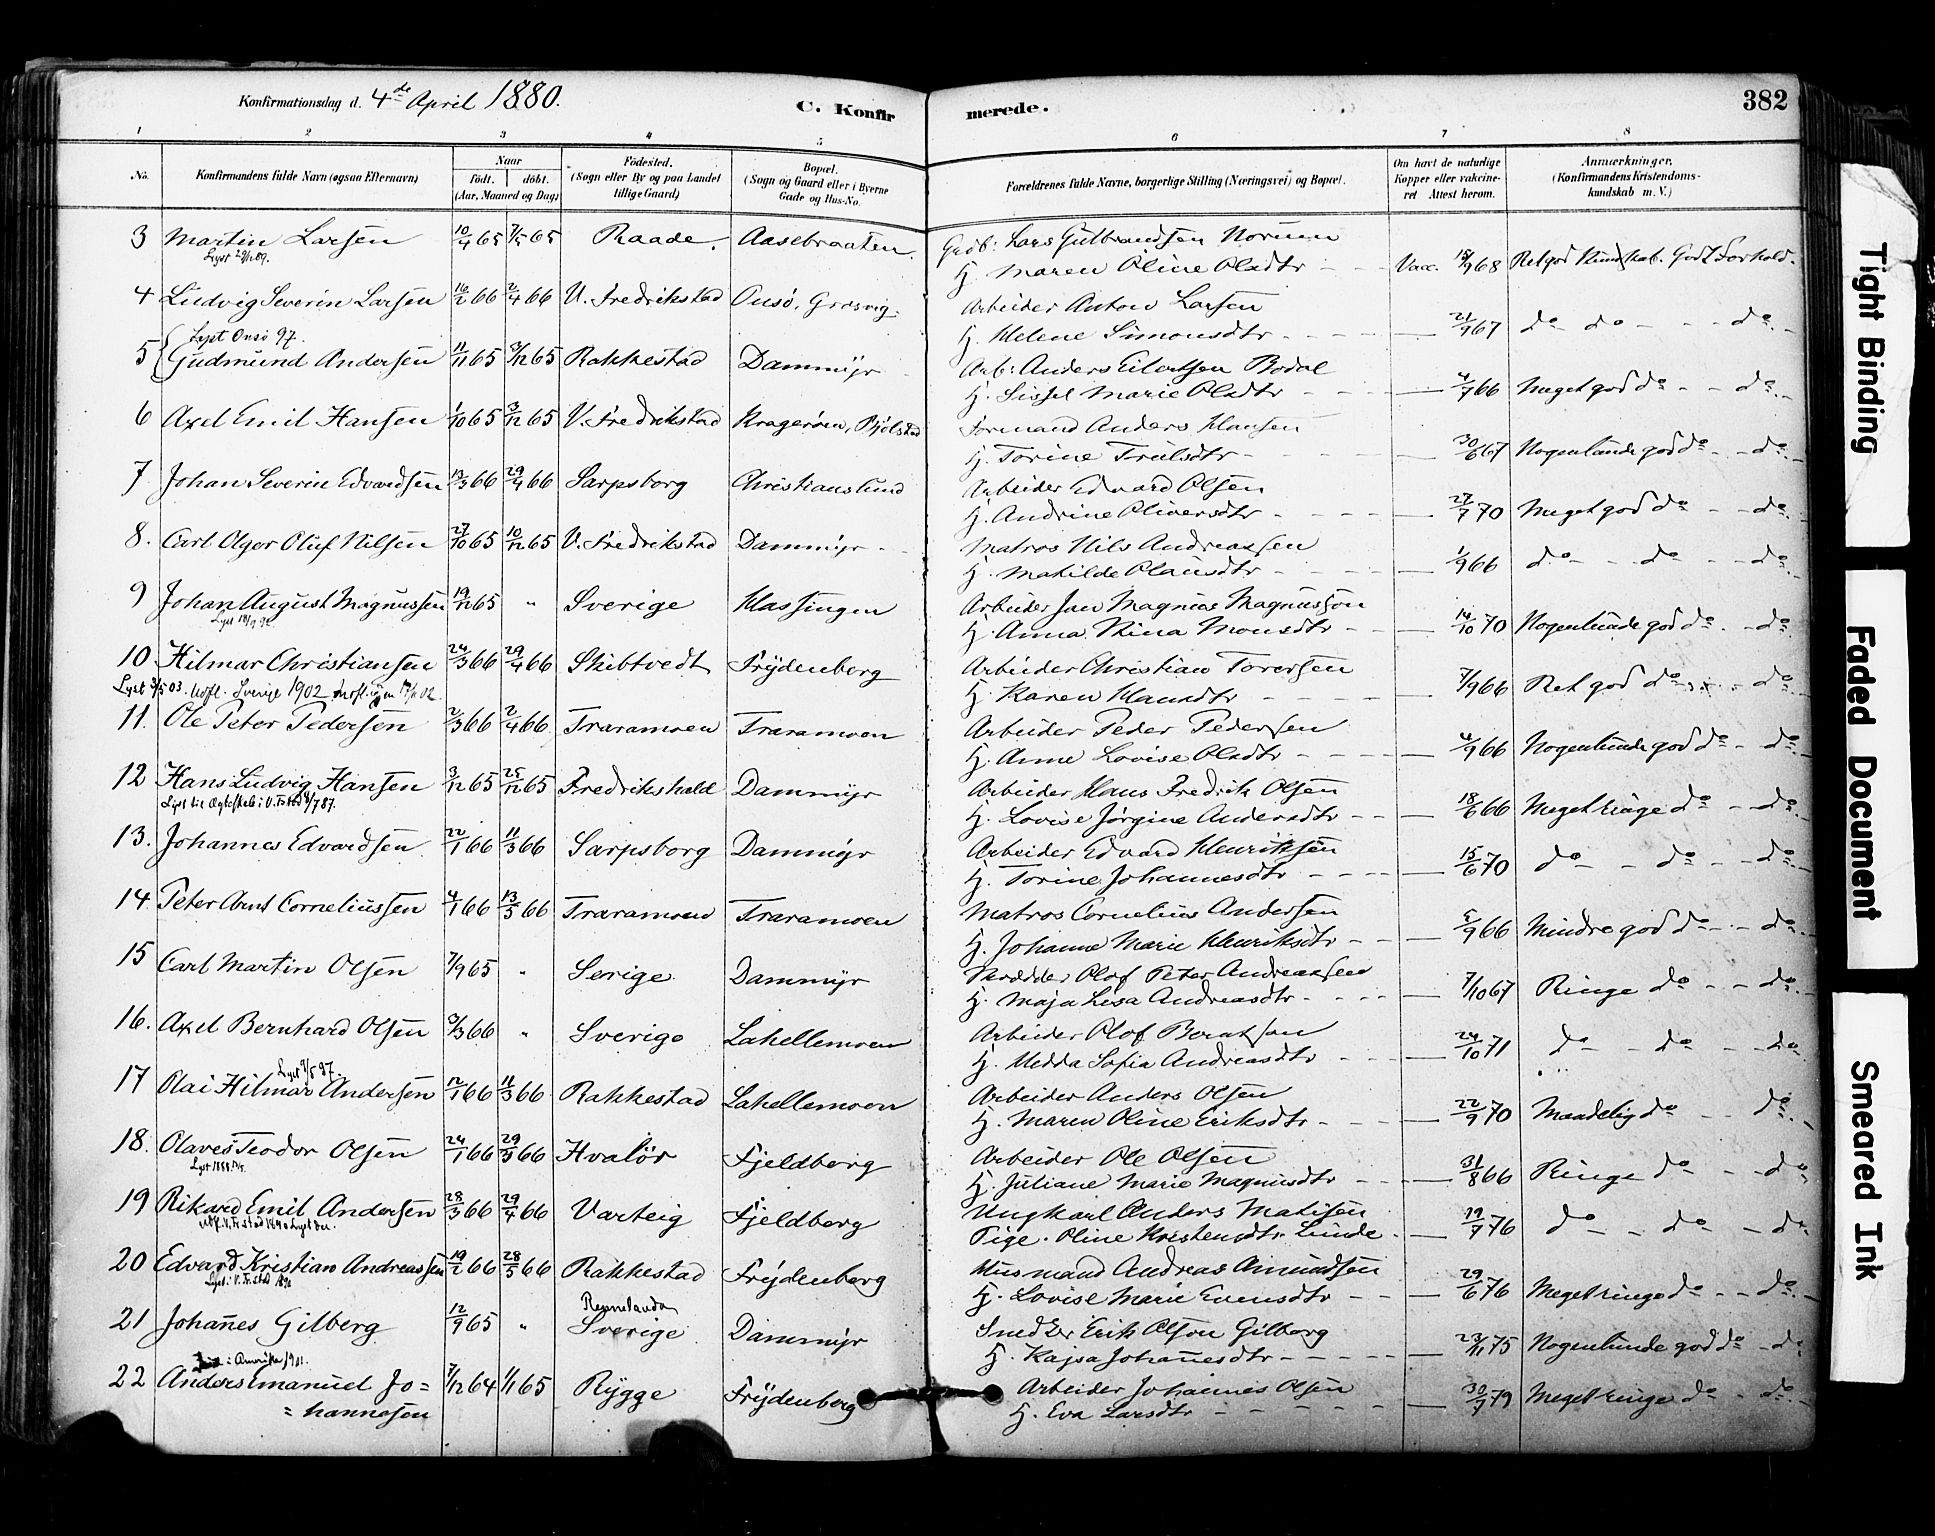 Konfirmationsdag d. 4de April 1880.
C. Konfirmerede.
382
1 2 3 4 5 6 7 8
No. Konfirmandens fulde Navn (ogsaa Efternavn) Naar født. døbt. (Aar, Maaned og Dag) Födested. (Sogn eller By og paa Landet tillige Gaard) Bopæl. (Sogn og Gaard eller i Byerne Gade og Hus-No. Forældrenes fulde Navne, borgerlige Stilling (Næringsvei) og Bopæl. Om havt de naturlige Kopper eller vakcineret Attest herom. Anmærkninger. (Konfirmandens Kristendomskundskab m. V.)
3 Martin Larsen 10/4 65 7/5 65 Raade. Aasebraaten Grdb: Lars Gulbrandsen
H. Maren Oline Olsdtr Vacc. 18/9 68 Retgod Kundskab. Godt Forhold.
4 Ludvig Severin Larsen 16/2 66 2/4 66 V. Fredrikstad Onsö, Gresvig Arbeider Anton Larsen
Lyst Onsö 97.
H. Helene Simonsdtr 21/9 67 do do do
5 Gudmund Andersen 11/11 65 3/12 65 Rakkestad Dammyr Arb: Anders Eilertsen Bodal
H. Sissel Marie Olsdtr 4/7 66 Meget god do do
6 Axel Emil Hansen 1/10 65 3/12 65 V. Fredrikstad Kragerøen, Formand Anders Hansen
H. Torine Trulsdtr 30/6 67 Nogenlunde god do do
7 Johan Severin Edvardsen 13/3 66 29/4 66 Sarpsborg Christianslund Arbeider Edvard Olsen
H. Andrine Oliversdtr 27/7 70 Meget god do do
8. Carl Olger Oluf Nilsen 27/10 65 10/12 65 V. Fredrikstad Dammyr Matros Nils Andreassen
H. Mathilde Olausdtr 1/9 66 do do do
9 Johan August Magnussen 19/12 65 " Sverige Hassingen Arbeider Jan Magnus Magnusson
H. Anna Stina Monsdtr 14/10 70 Nogenlunde god do do
10 Hilmar Christiansen 24/3 66 29/4 66 Skibtvedt Frydenberg Arbeider Christian Torersen
H. Karen Hansdtr 7/9 66 Ret god do do
11. Ole Peter Pedersen 2/3 66 2/4 66 Traramoen Traramoen Arbeider Peder Pedersen
H. Anne Lovise Olsdtr 4/9 66 Nogenlunde god do do
12 Hans Ludvig Hansen 3/12 65 25/12 65 Fredrikshald Dammyr Arbeider Hans Fredrik Olsen
H. Lovise Jørgine Andersdtr 18/6 66 Meget ringe do do
13. Johannes Edvardsen 22/1 66 11/3 66 Sarpsborg Dammyr Arbeider Edvard Henriksen
H. Torine Johannesdtr 15/6 70 do do do
14. Peter Arnt Corneliussen 4/1 66 13/5 66 Traramoen Traramoen Matros Cornelius Andersen
H. Johanne Marie Henriksdtr 5/9 66 Mindre god do do
15 Carl Martin Olsen 7/9 65 " Serige Dammyr Skrædder Olof Peter Andreassen
H. Maja Lisa Andreasdtr 7/10 67 Ringe do do
16. Axel Bernhard Olsen 3/3 66 " Sverige Lahellemoen Arbeider Olof
H. Hedda Sofia Andreasdtr 24/10 71 do do do
17 Olai Hilmar Andersen 12/1 66 11/3 66 Rakkestad Lahellemoen Arbeider Anders Olsen
H. Maren Oline Eriksdtr 22/9 70 Maadelig do do
18. Olaves Teodor Olsen 24/1 66 29/3 66 Hvalör Fjeldberg Arbeider Ole Olsen
H. Juliane Marie Magnusdtr 31/8 66 Ringe do do
19 Rikard Emil Andersen 28/3 66 29/4 66 Varteig Fjeldberg Ungkarl Anders Matisen
Pige. Oline Kristensdtr. Lunde 19/7 76 do do do
20 Edvard Kristian Andreassen 19/2 66 28/5 66 Rakkestad Frydenberg Husmand Andreas Amundsen
H. Lovise Marie Evensdtr 29/6 76 Meget ringe do do
21 Johannes Gilberg 12/9 65 " Sverige Dammyr Smed Er Erik Olsson Gilberg
H. Kajsa Johannesdtr 23/11 75 Nogenlunde god do do
22 Anders Emanuel Jo= 7/12 64 1/1 65 Rygge Frydenberg Arbeider Johannes Olsen
=hannesen H. Eva Larsdtr 30/7 79 Meget ringe do do
Tight Binding
Faded Document
Smeared Ink